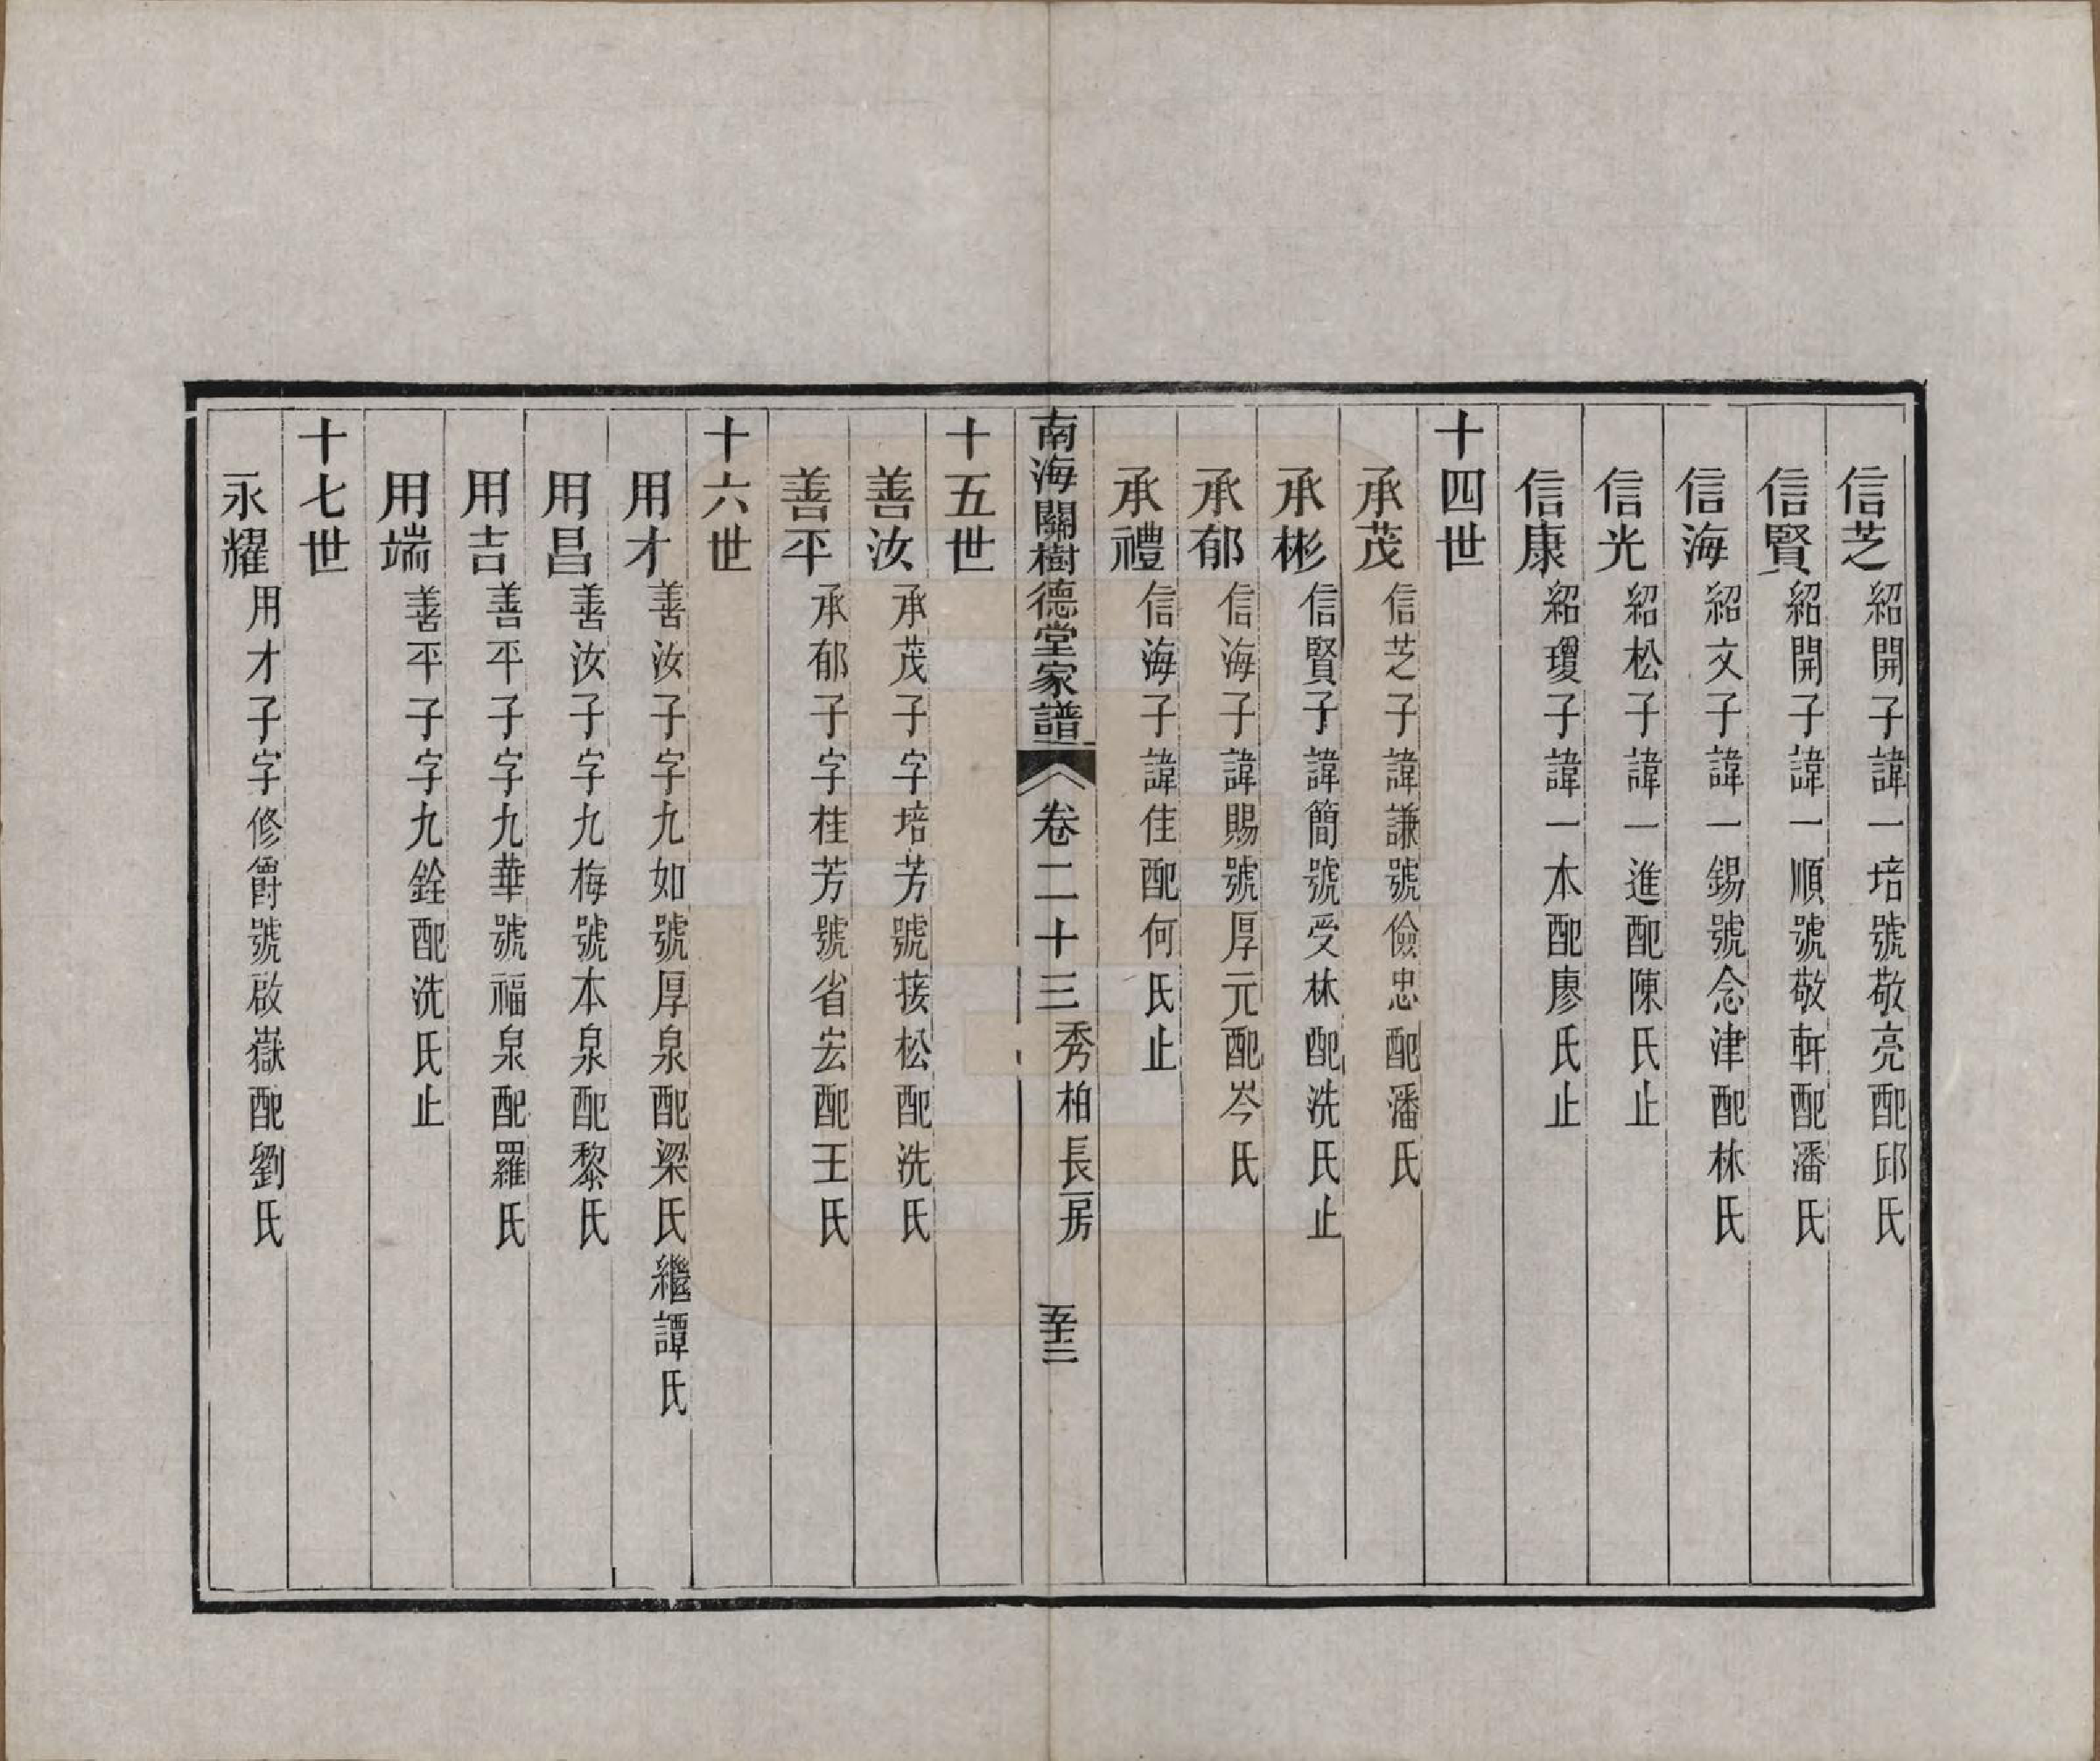 信芝 紹開子諱一培號敬亮配邱氏
信賢 紹開子諱一順號敬軒配潘氏
信海 紹文子諱一錫號念津配林氏
信光 紹松子諱一進配陳氏止
信康 紹瓊子諱一本配廖氏止
十四世
承茂 信芝子諱謙號儉忠配潘氏
承彬 信賢子諱簡號受林配冼氏止
承郁 信海子諱賜號厚元配岑氏
承禮 信海子諱佳配何氏止
南海關樹德堂家譜 卷二十三 秀柏長房 五十三
十五世
善汝 承茂子字培芳號接松配冼氏
善平 承郁子字桂芳號省宏配王氏
十六世
用才 善汝子字九如號厚泉配梁氏繼譚氏
用昌 善汝子字九梅號本泉配黎氏
用吉 善平子字九華號福泉配羅氏
用端 善平子字九銓配冼氏止
十七世
永耀 用才子字修爵號啟嶽配劉氏